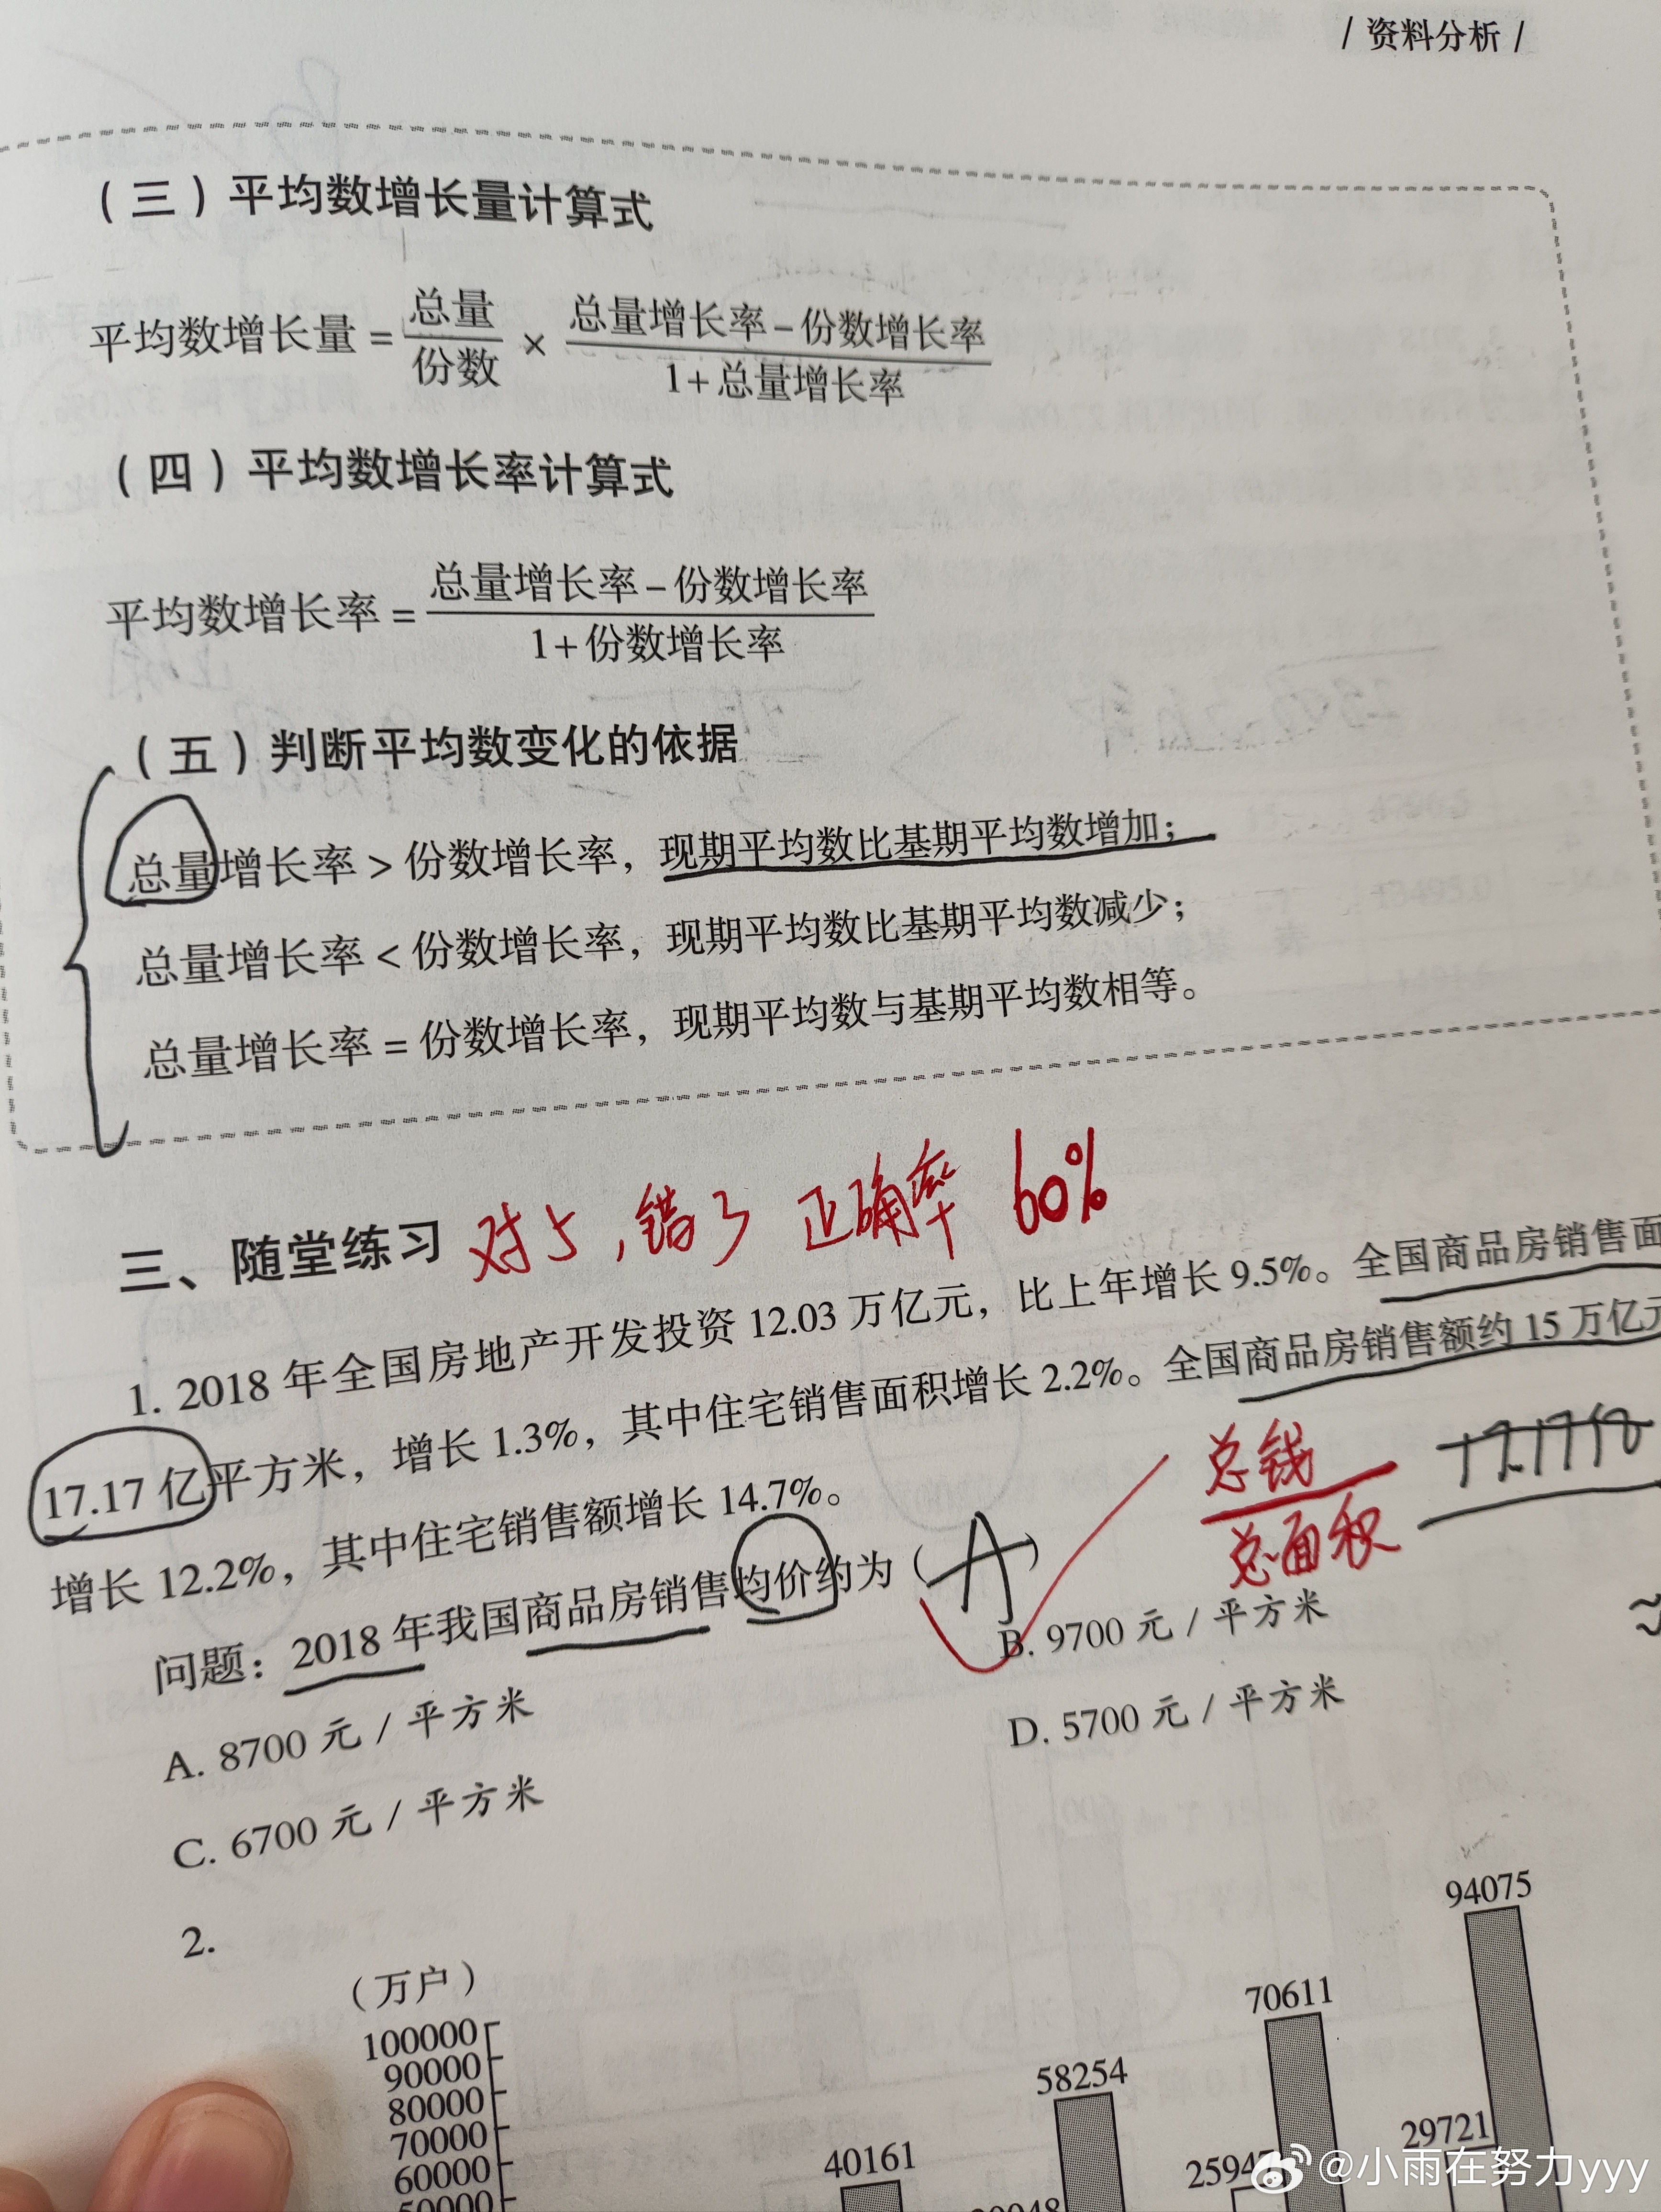 / 资料分析 /
（三）平均数增长量计算式
平均数增长量 = 总量/份数 × 总量增长率 - 份数增长率/1 + 总量增长率
（四）平均数增长率计算式
平均数增长率 = 总量增长率 - 份数增长率/1 + 份数增长率
（五）判断平均数变化的依据
总量增长率 > 份数增长率，现期平均数比基期平均数增加；
总量增长率 < 份数增长率，现期平均数比基期平均数减少；
总量增长率 = 份数增长率，现期平均数与基期平均数相等。
三、随堂练习 对5，错3 正确率 60%
1. 2018 年全国房地产开发投资 12.03 万亿元，比上年增长 9.5%。全国商品房销售面
17.17 亿平方米，增长 1.3%，其中住宅销售面积增长 2.2%。全国商品房销售额约 15 万亿元
增长 12.2%，其中住宅销售额增长 14.7%。
总钱
总面积
问题：2018 年我国商品房销售均价约为（A）
A. 8700 元 / 平方米
B. 9700 元 / 平方米
C. 6700 元 / 平方米
D. 5700 元 / 平方米
2.
（万户）
100000
90000
80000
70000
60000
50000
40161
58254
70611
94075
29721
@小雨在努力yyy